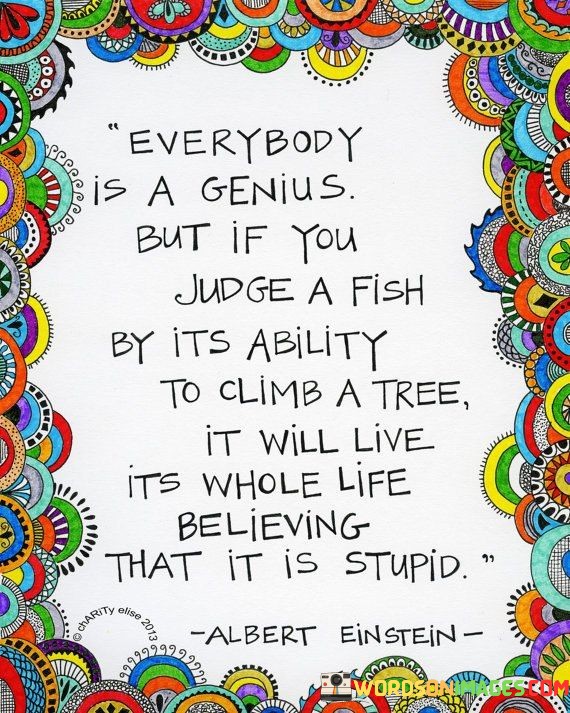 "EVERYBODY
iS A GENiUS.
BUT iF YOU
JUDGE A FiSH
BY iTS ABiLiTY
TO CLiMB A TREE,
iT WiLL LiVE
iTS WHOLE LiFE
BELiEViNG
THAT iT iS STUPiD."
-ALBERT EiNSTEiN-
© chARiTy elise 2013
WORDSONIMAGES.COM